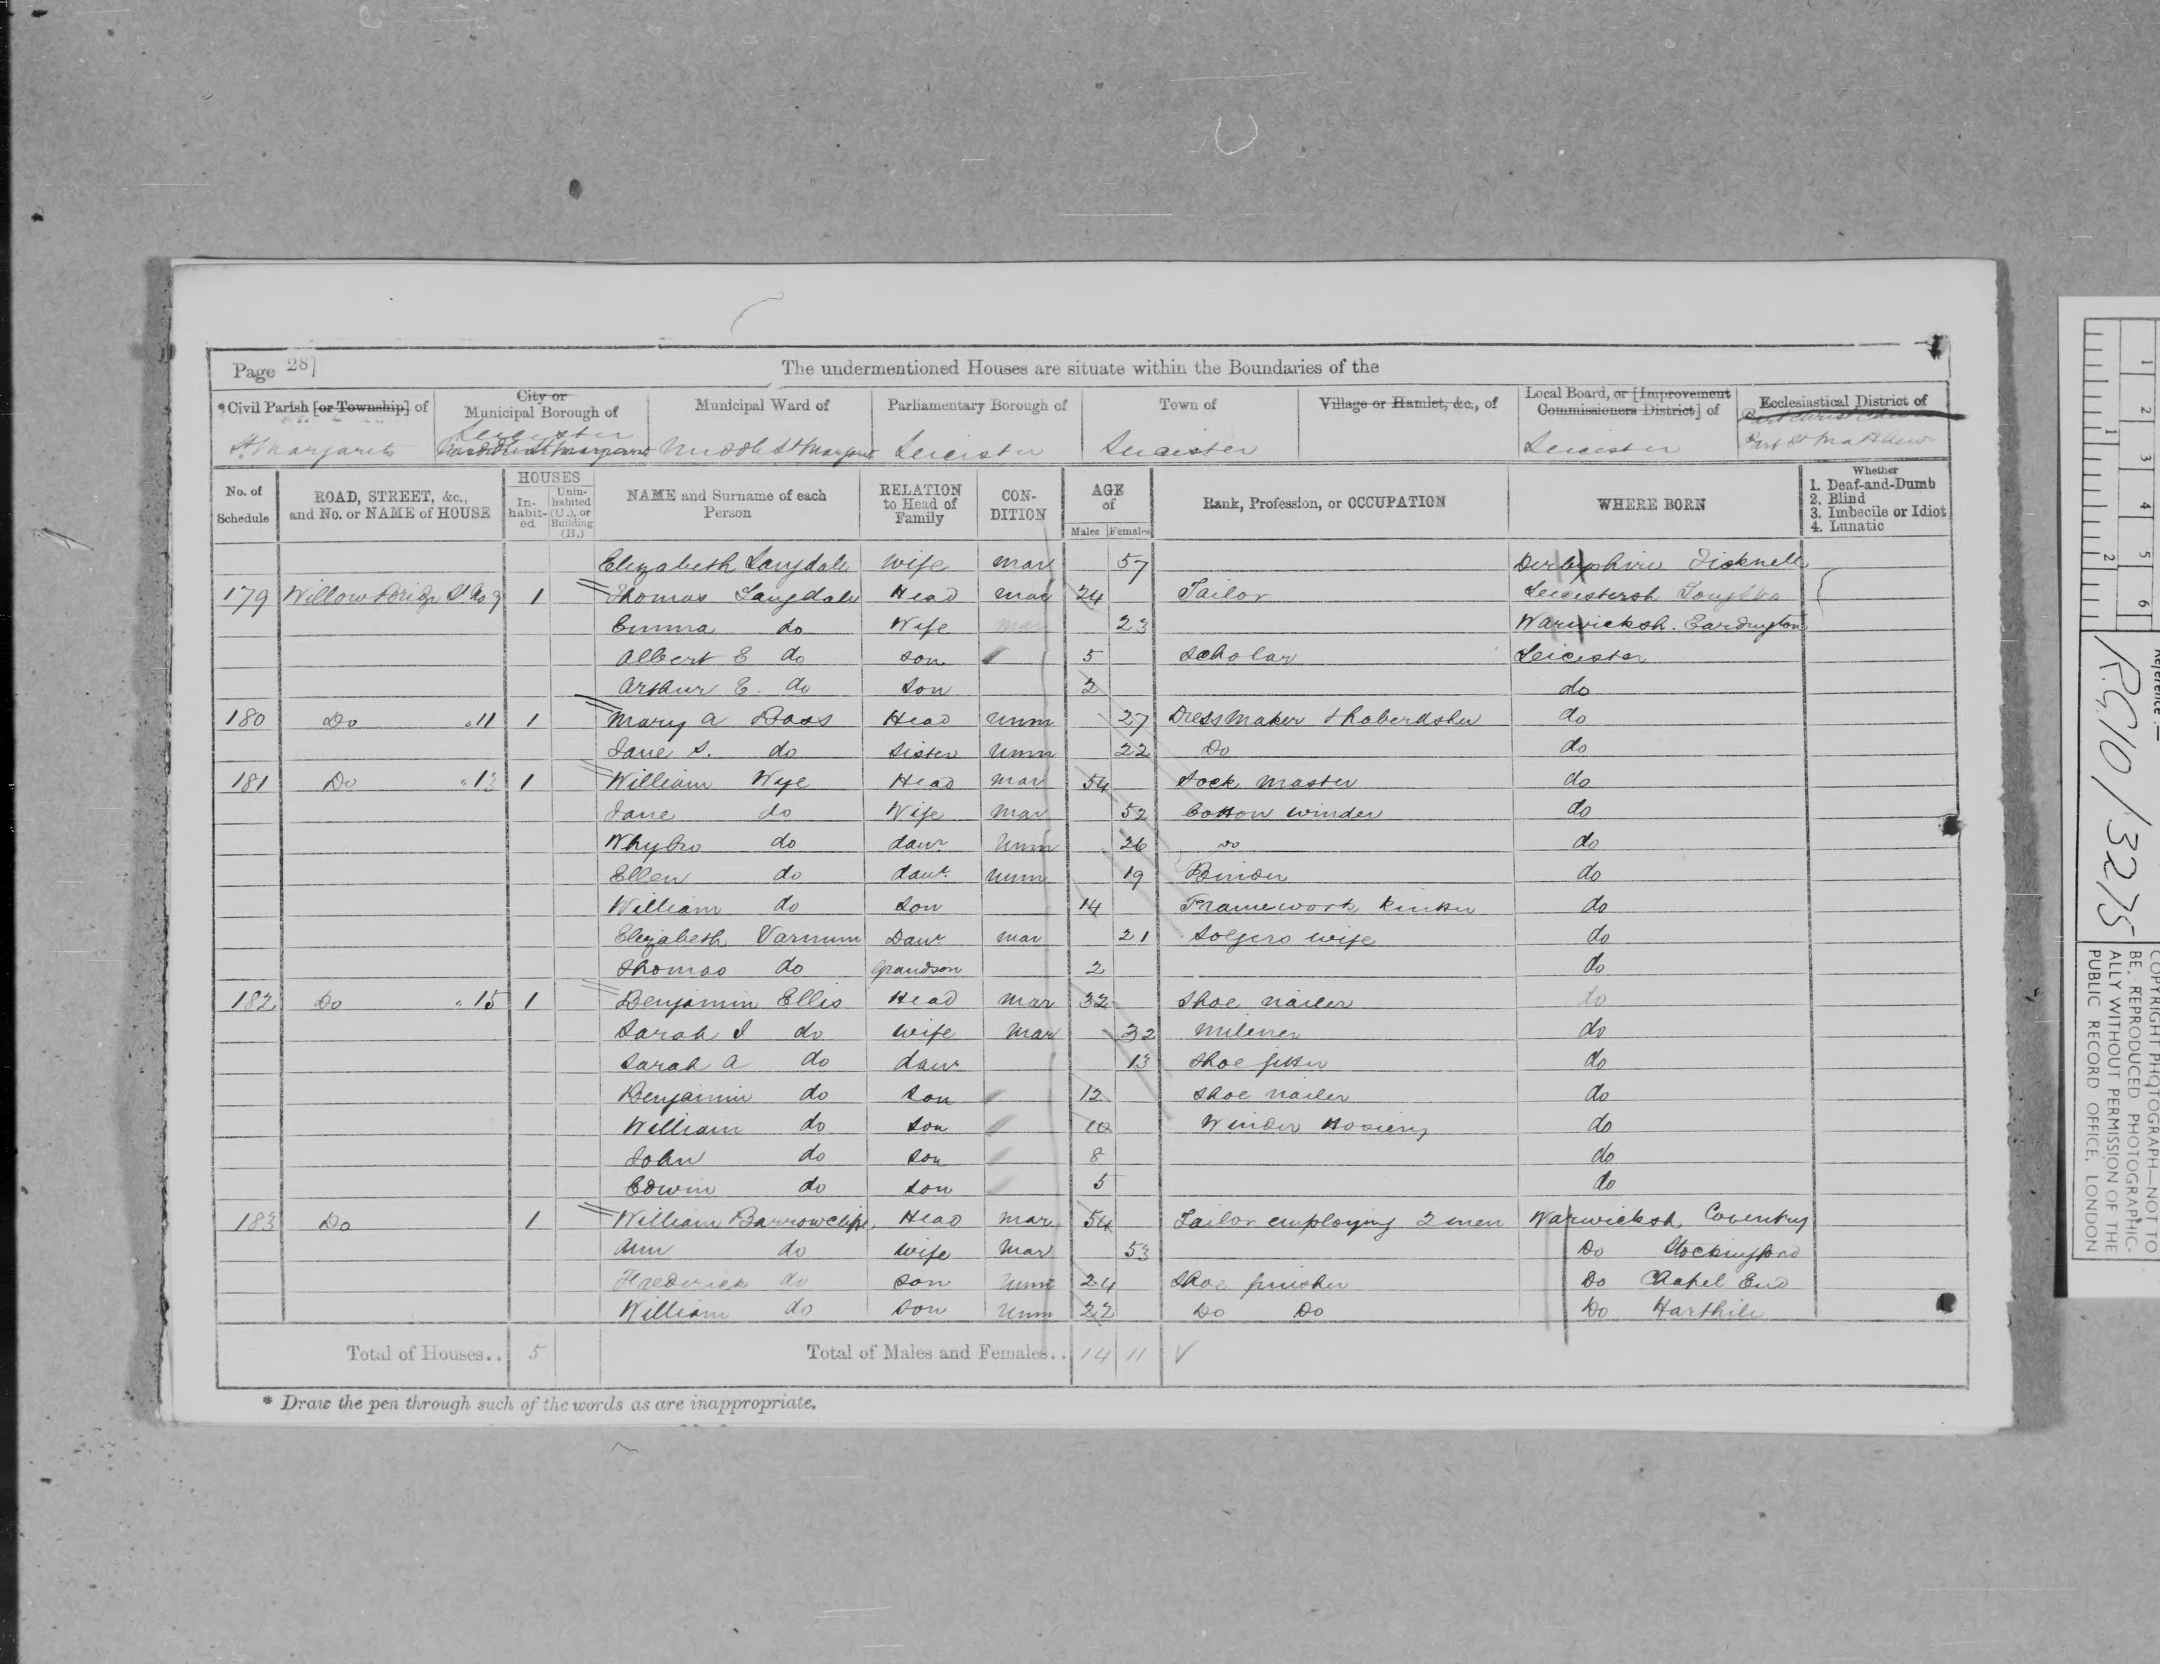 Page 28]
The undermentioned Houses are situate within the Boundaries of the
*Civil Parish [or Township] of
City or Municipal Borough of
Municipal Ward of
Parliamentary Borough of
Town of
Village or Hamlet, &c., of
Local Board, or [Improvement Commissioners District] of
Ecclesiastical District of
St Margarets Leicester Middle St Margarets Leicester Leicester Leicester Part St Matthews
No. of Schedule
ROAD, STREET, &c., and No. or NAME of HOUSE
HOUSES
In-habit-ed
Unin-habited (U.), or Building (B.)
NAME and Surname of each Person
RELATION to Head of Family
CON-DITION
AGE of
Males Females
Rank, Profession, or OCCUPATION
WHERE BORN
Whether
1. Deaf-and-Dumb
2. Blind
3. Imbecile or Idiot
4. Lunatic
Elizabeth Langdale Wife Mar 57 Derbyshire Ticknell
179 Willow Bridge St No 9 1 Thomas Langdale Head Mar 24 Tailor Leicestersh Loughbo
Emma do Wife Mar 23 Warwicksh.
Albert E do Son 5 Scholar Leicester
Arthur E. do Son 2 do
180 Do " 11 1 Mary A Bass Head Unm 27 Dress Maker & haberdasher do
Jane S. do Sister Unm 22 Do do
181 Do " 13 1 William Wye Head Mar 54 Sock Master do
Jane do Wife Mar 52 Cotton winder do
do daur Unm 26 do do
Ellen do daur. Unm 19 Binder do
William do Son 14 Framework Knitter do
Elizabeth Varnum Daur Mar 21 Solgers wife do
Thomas do Grandson 2 do
182 Do " 15 1 Benjamin Ellis Head Mar 32 Shoe nailer do
Sarah J do Wife Mar 32 Milener do
Sarah A do daur 13 Shoe fitter do
Benjamin do Son 12 Shoe nailer do
William do Son 10 Winder Hosiery do
John do Son 8 do
Edwin do Son 5 do
183 Do 1 William Barrowcliffe Head Mar 54 Tailor employing 2 men Warwicksh Coventry
Ann do Wife Mar 53 Do Stockingford
Frederick do Son Unm 24 Shoe finisher Do Chapel End
William do Son Unm 22 Do Do Do Harthill
Total of Houses.. 5 Total of Males and Females.. 14 11
* Draw the pen through such of the words as are inappropriate.
Reference:—
R.G.10/3275
COPYRIGHT PHOTOGRAPH—NOT TO
BE REPRODUCED PHOTOGRAPHIC-
ALLY WITHOUT PERMISSION OF THE
PUBLIC RECORD OFFICE, LONDON
1 2 3 4 5 6
1 2